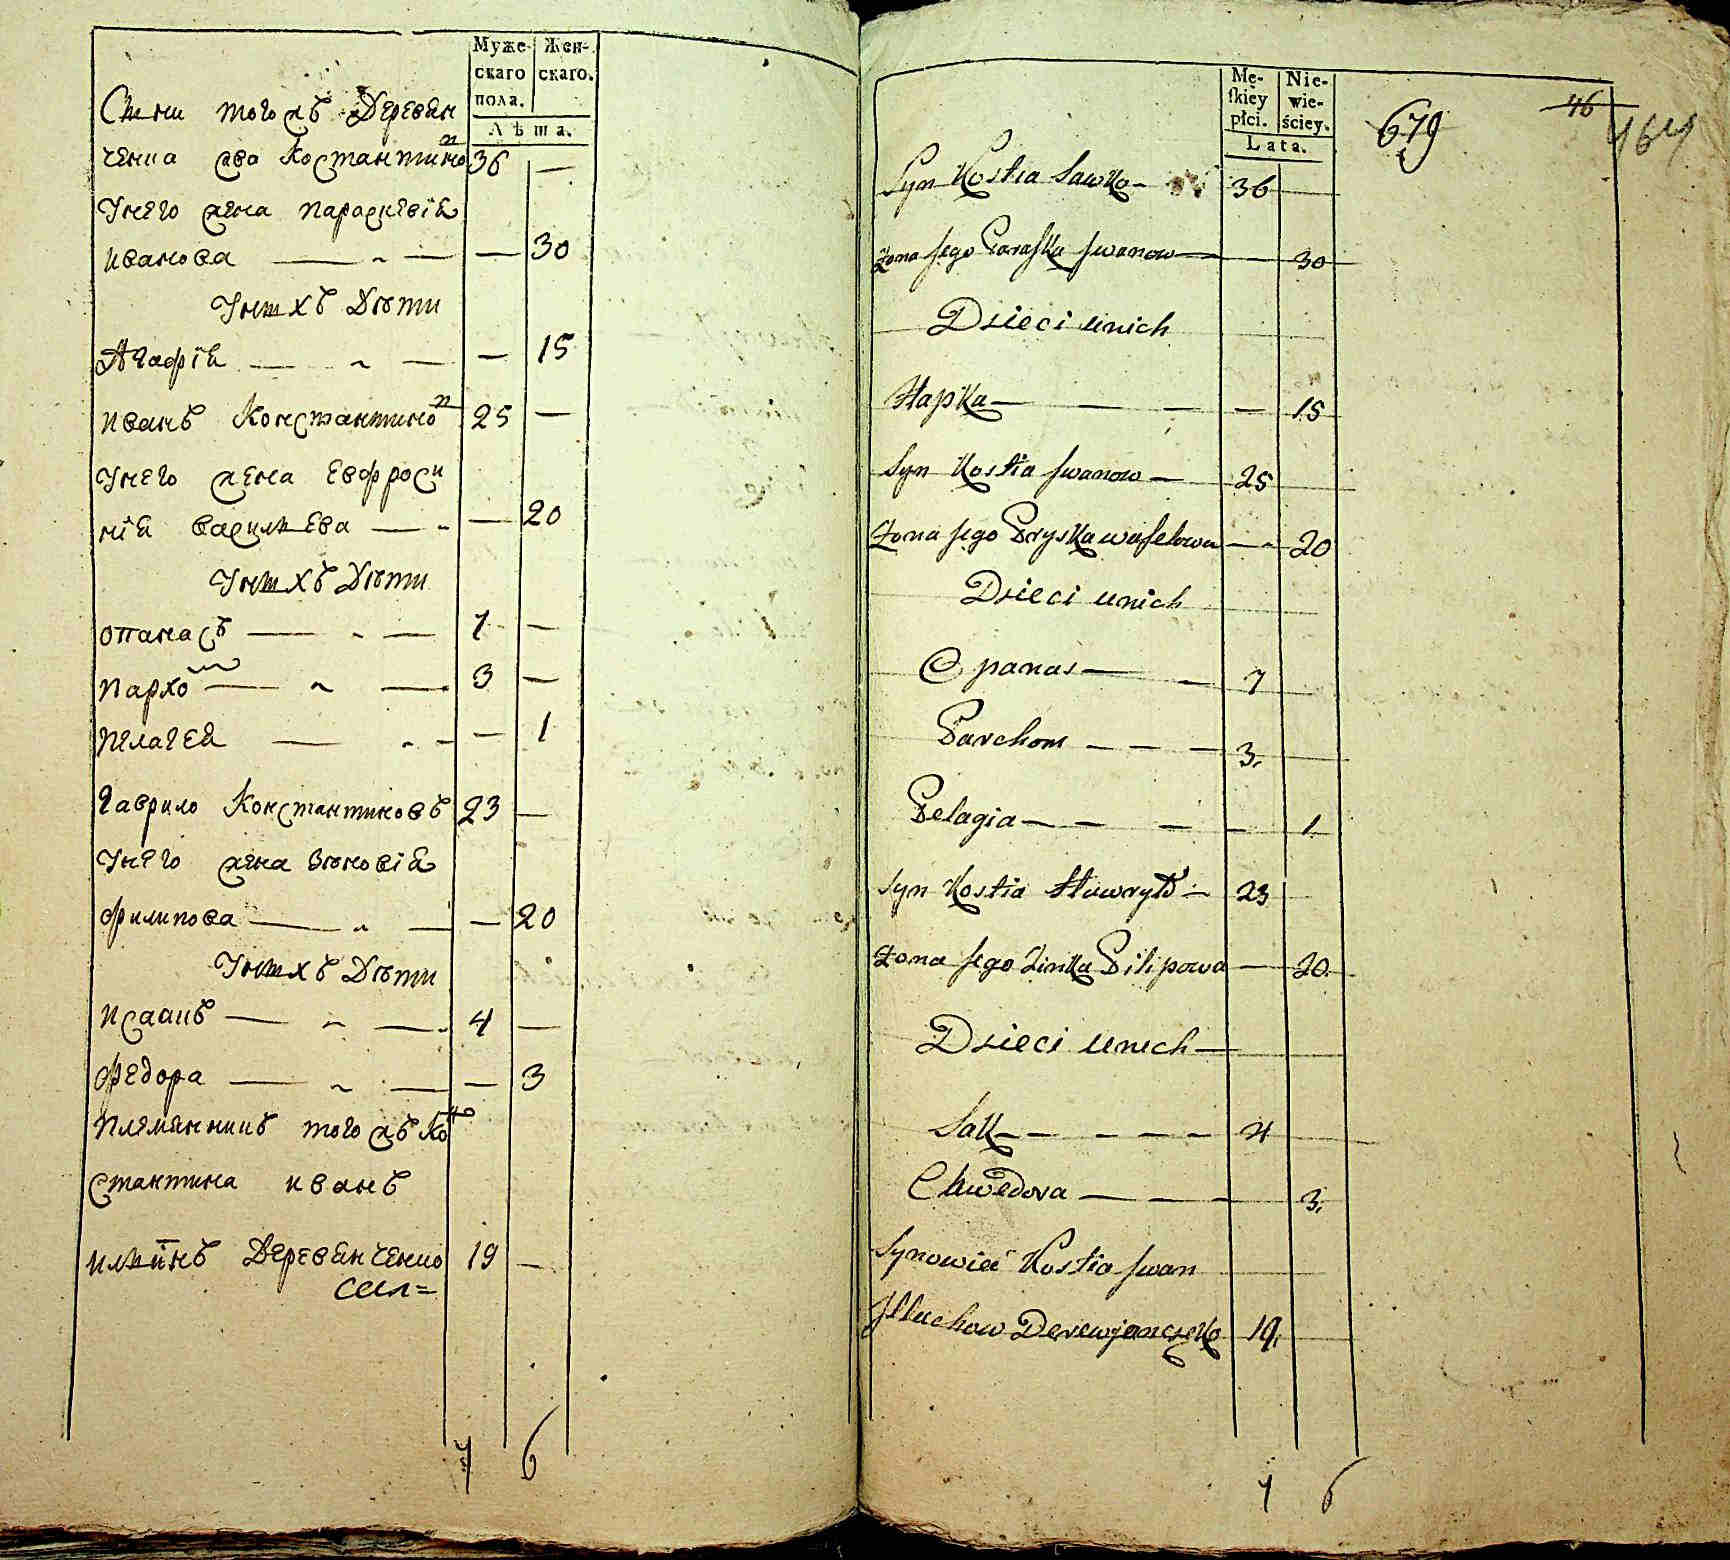 Муже-
скаго
пола.
Жен-
скаго.
Лѣта.
Сыни того жъ Деревян
ченка сво Костантино в 36 —
У него жена Параскевія
Иванова — „ — — 30
У нихъ Дѣти
Агафія — „ — — 15
Иванъ Константинов 25 —
У него жена Евфроси
нія Васильева — „ — 20
У нихъ Дѣти
Опанасъ — „ — 7 —
Пархом — „ — 3 —
Пелагея — „ — — 1
Гаврило Константиновъ 23 —
У него жена Зѣновія
Филипова — „ — — 20
У нихъ Дѣти
Исаакъ — „ — 4 —
Федора — „ — — 3
Племянникъ того жъ Кон
стантина Иванъ
Ильинъ Деревянченко 19 —
7 6
Mę-
skiey
płci.
Nie-
wie-
ściey.
Lata.
679
46
464
Syn Kostia Sawko — 36 —
Żona Jego Paraska Iwanow — — 30
Dzieci unich
Hapka — — — — 15
Syn Kostia Iwanow — 25
Żona Jego Pryska Waselowa — — 20
Dzieci unich
Opanas — — 7
Parchom — — — 3.
Pelagia — — — — 1
Syn Kostia Hawryło — 23
Żona Jego Zinka Pilipowa — 20.
Dzieci unich —
Sak — — — — 4
Chwedora — — — 3.
Synowiec Kostia Iwan
Illuchow Derewjanczeko 19.
7 6